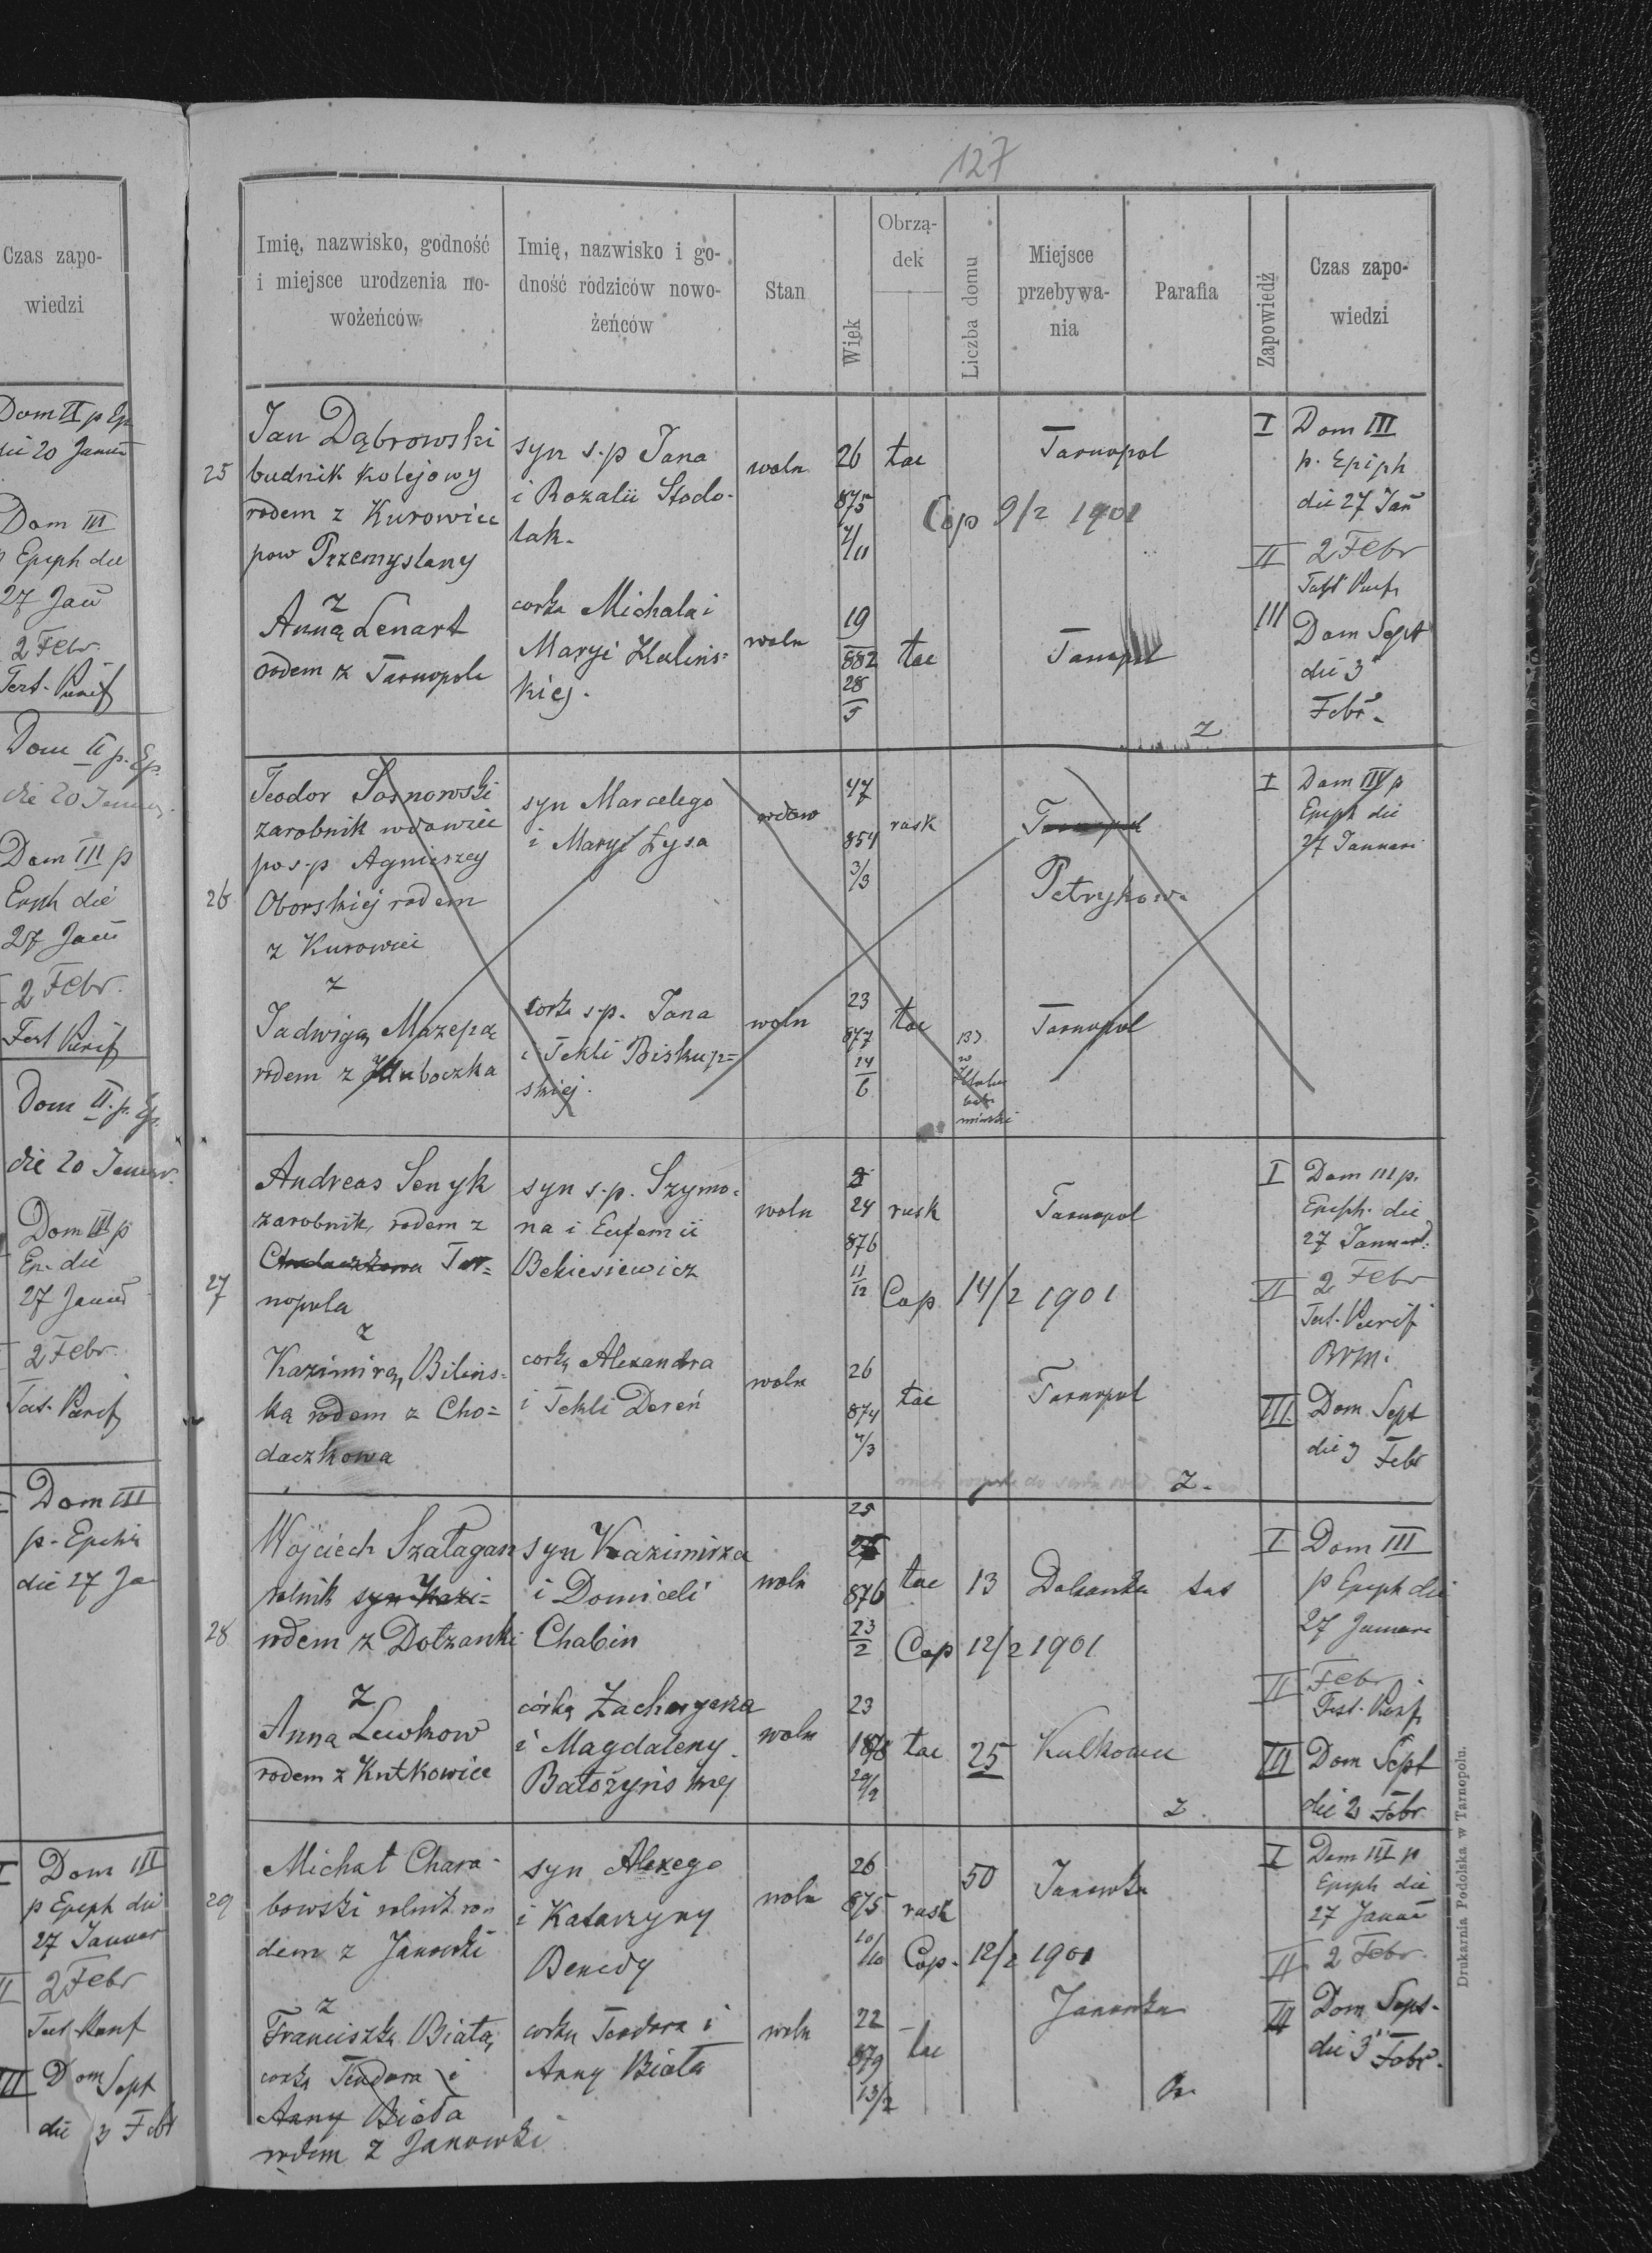 127
Czas zapo-
wiedzi
Dom II p Ep
die 20 Januar
Dom III
p Epiph die
27 Jan
2 Febr.
Fest. Purif
Dom II p. Ep.
die 20 Januar.
Dom III p
Epiph die
27 Jan
2 Febr.
Fest Purif
Dom II. p. Ep.
die 20 Januar.
Dom III p
Ep. die
27 Januar
2 Febr.
Fest. Purif
Dom III
p. Epiph
die 27 Ja
I Dom III
p Epiph die
27 Januar
II 2 Febr
Fest. Purif
III Dom Sept
die 3 Febr
Imię, nazwisko, godność
i miejsce urodzenia no-
wożeńców
Imię, nazwisko i go-
dność rodziców nowo-
żeńców
Stan
Wiek
Obrzą-
dek
Liczba domu
Miejsce
przebywa-
nia
Parafia
Zapowiedź
Czas zapo-
wiedzi
25
Jan Dąbrowski
budnik kolejowy
rodem z Kurowice
pow Przemyslany
z
Anną Lenart
rodem z Tarnopola
syn s.p Jana
i Rozalii Stodo-
lak.
corka Michala i
Maryi Halins-
kiej.
woln
26
875
4/11
łac
Tarnopol
Cop 9/2 1901
woln
19
882
28
5
łac
Tarnopol
z
I Dom III
p. Epiph
die 27 Jan
II 2 Febr
Fest Purif
III Dom Sept
die 3
Febr.
26
Teodor Sosnowski
zarobnik wdowiec
po s.p Agnieszcy
Oborskiej rodem
z Kurowiec
z
Jadwigą Mazepą
rodem z Hluboczka
syn Marcelego
i Maryi Łysa
corka s.p. Jana
i Tekli Biskup-
skiej.
wdow
47
854
3/3
rusk
Tarnopol
Petrykow.
woln
23
877
14
6
łac
Tarnopol
I Dom III p
Epiph die
27 Januari
27
Andreas Senyk
zarobnik, rodem z
Chodaczkowa Tar-
nopola
z
Kazimirą Bilins-
ką rodem z Cho-
daczkowa
syn s.p. Szymo-
na i Eufemii
Bekiesiewicz
corką Alexandra
i Tekli Dereń
woln
24
876
11
12
rusk
Tarnopol
Cop 14/2 1901
woln
26
874
4/3
łac
Tarnopol
z.
I Dom III p.
Epiph. die
27 Januar.
II 2 Febr
Fest. Purif
BVM.
III Dom Sept
die 3 Febr
28
Wojciech Szałagan
rolnik syn Kazi-
rodem z Dołzanki
z
Anną Lewkow
rodem z Kutkowiec
syn Kazimirza
i Domiceli
Chabin
córką Zacharyasza
i Magdaleny
Bałożyńskiej
woln
25
876
23
2
łac
13
Dolzanka
Cop 12/2 1901
woln
23
1878
20/2
łac
25
Kutkowce
z.
I Dom III
p Epiph die
27 Januar
II Febr.
Fest. Purif
III Dom Sept
die 3 Febr
29
Michał Chara-
bowski rolnik ro-
dem z Janowki
z
Franciszką Białą
corką Teodora i
Anny Biała
rodem z Janowki
syn Alexego
i Katarzyny
Benedy
corka Teodora i
Anny Biała
woln
26
875
10/10
rusk
50
Janowka
Cop. 12/2 1901
woln
22
879
13/2
łac
Janowka
I Dom III p
Epiph die
27 Januar
II 2 Febr.
III Dom Sept.
die 3 Febr.
Drukarnia Podolska w Tarnopolu.